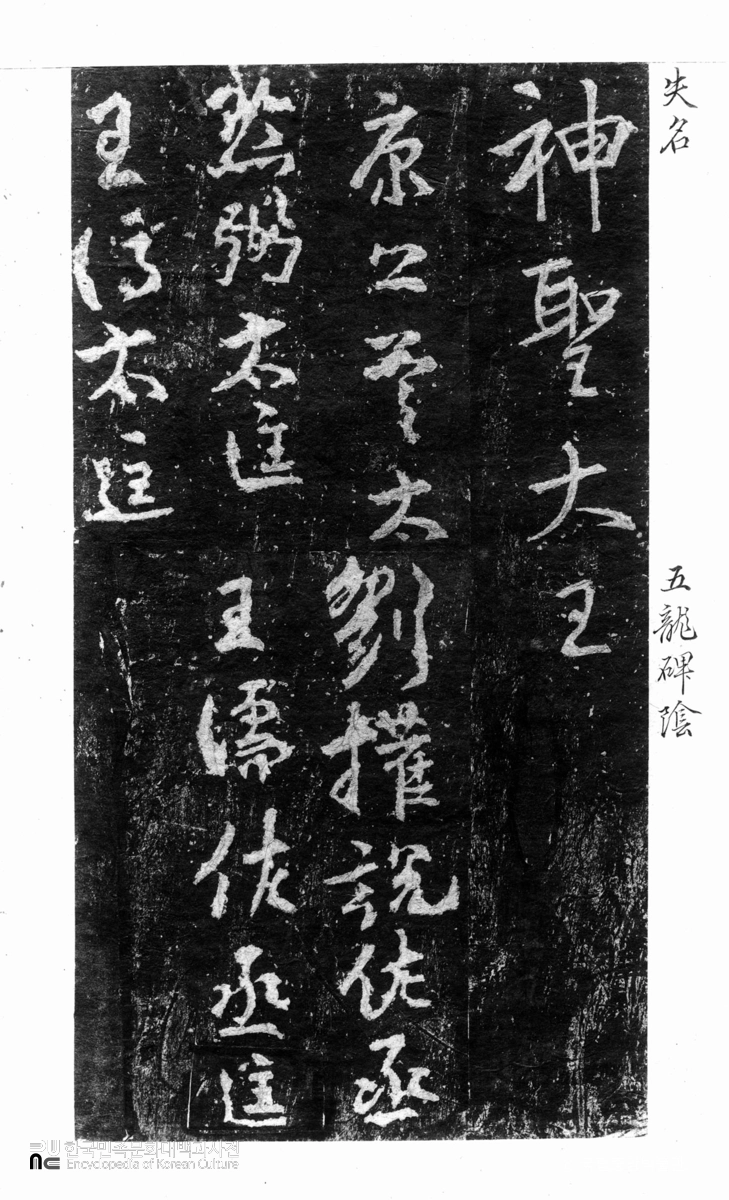 失名
五龍碑陰
神聖大王
康公萱太
劉權說佐丞
黔弼太匡
王濡佐丞
匡
王
太匡
한국민족문화대백과사전
Encyclopedia of Korean Culture